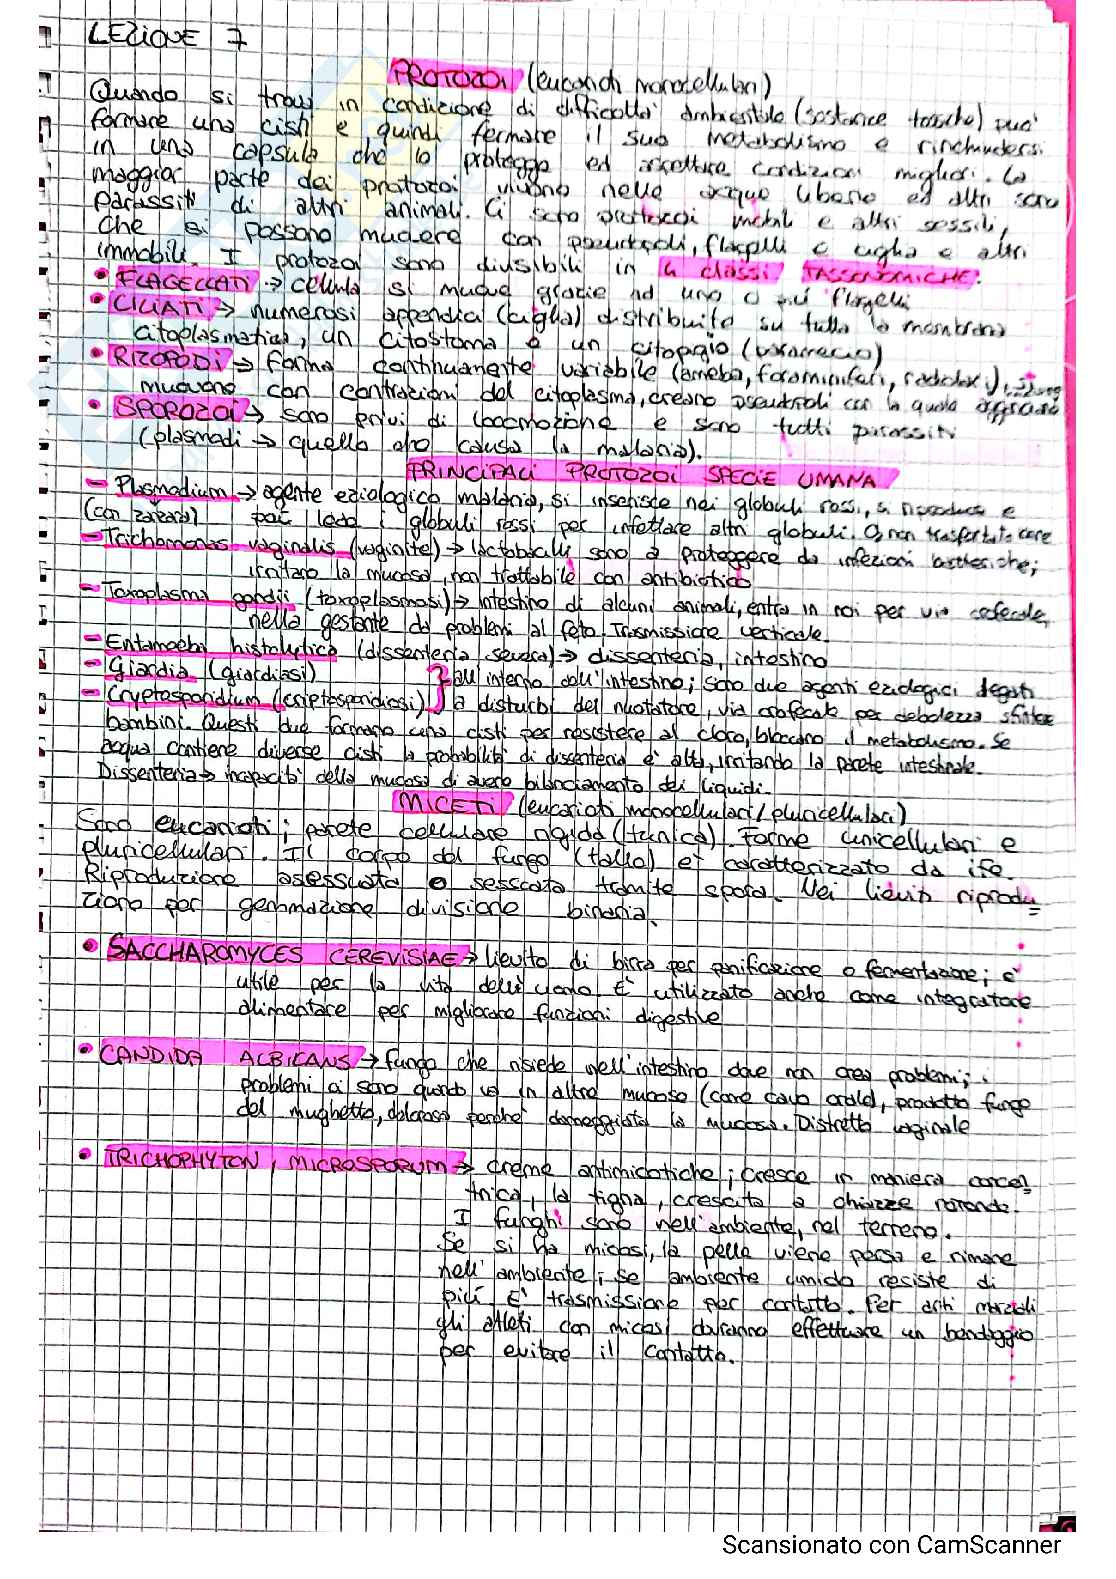 LEZIONE 7
PROTOZOI (eucarioti monocellulari)
Quando si trova in condizione di difficoltà ambientale (sostanze tossiche) può
formare una cisti e quindi fermare il suo metabolismo e rinchiudersi
in una capsula che lo protegge ed aspettare condizioni migliori. La
maggior parte dei protozoi vivono nelle acque libere ed altri sono
parassiti di altri animali. Ci sono protozoi mobili e altri sessili,
che si possono muovere con pseudopodi, flagelli e ciglia e altri
immobili. I protozoi sono divisibili in 4 classi TASSONOMICHE:
• FLAGELLATI → cellula si muove grazie ad uno o più flagelli
• CILIATI → numerosi appendici (ciglia) distribuite su tutta la membrana
citoplasmatica, un citostoma o un citopigio (paramecio)
• RIZOPODI → forma continuamente variabile (ameba, foraminiferi, radiolari), si
muovono con contrazioni del citoplasma, creano pseudopodi con la quale
• SPOROZOI → sono privi di locomozione e sono tutti parassiti
(plasmodi → quello che causa la malaria).
PRINCIPALI PROTOZOI SPECIE UMANA
- Plasmodium → agente eziologico malaria, si inserisce nei globuli rossi, si riproduce e
(con zanzara) poi lede i globuli rossi per infettare altri globuli. O2 non trasportato
- Trichomonas vaginalis (vaginite) → lactobacilli sono a proteggere da infezioni batteriche;
irritano la mucosa, non trattabile con antibiotico
- Toxoplasma gondii (toxoplasmosi) → intestino di alcuni animali, entra in noi per via orofecale,
nella gestante da problemi al feto. Trasmissione verticale.
- Entamoeba histolytica (dissenteria severa) → dissenteria, intestino
- Giardia (giardiasi) } all'interno dell'intestino; sono due agenti eziologici legati
- Cryptosporidium (criptosporidiosi) } a disturbi del nuotatore, via orofecale per debolezza sfintere
bambini. Questi due formano una cisti per resistere al cloro, bloccano il metabolismo. Se
acqua contiene diverse cisti la probabilità di dissenteria è alta, irritando la parete intestinale.
Dissenteria → incapacità della mucosa di avere bilanciamento dei liquidi.
MICETI (eucarioti monocellulari/pluricellulari)
Sono eucarioti; parete cellulare rigida (tunica). Forme unicellulari e
pluricellulari. Il corpo del fungo (tallo) è caratterizzato da ife.
Riproduzione asessuata o sessuata tramite spora. Nei lieviti riprodu=
zione per gemmazione divisione binaria.
• SACCHAROMYCES CEREVISIAE → lievito di birra per panificazione o fermentazione; è
utile per la vita dell'uomo. È utilizzato anche come integratore
alimentare per migliorare funzioni digestive
• CANDIDA ALBICANS → fungo che risiede nell'intestino dove non crea problemi;
problemi ci sono quando va in altre mucose (come cavo orale), prodotto fungo
del mughetto, doloroso perché danneggiata la mucosa. Distretto vaginale
• TRICHOPHYTON, MICROSPORUM → creme antimicotiche; cresce in maniera concen=
trica, la tigna, crescita a chiazze rotonde.
I funghi sono nell'ambiente, nel terreno.
Se si ha micosi, la pelle viene persa e rimane
nell'ambiente; se ambiente umido resiste di
più. È trasmissione per contatto. Per arti marziali
gli atleti con micosi dovranno effettuare un bendaggio
per evitare il contatto.
Scansionato con CamScanner